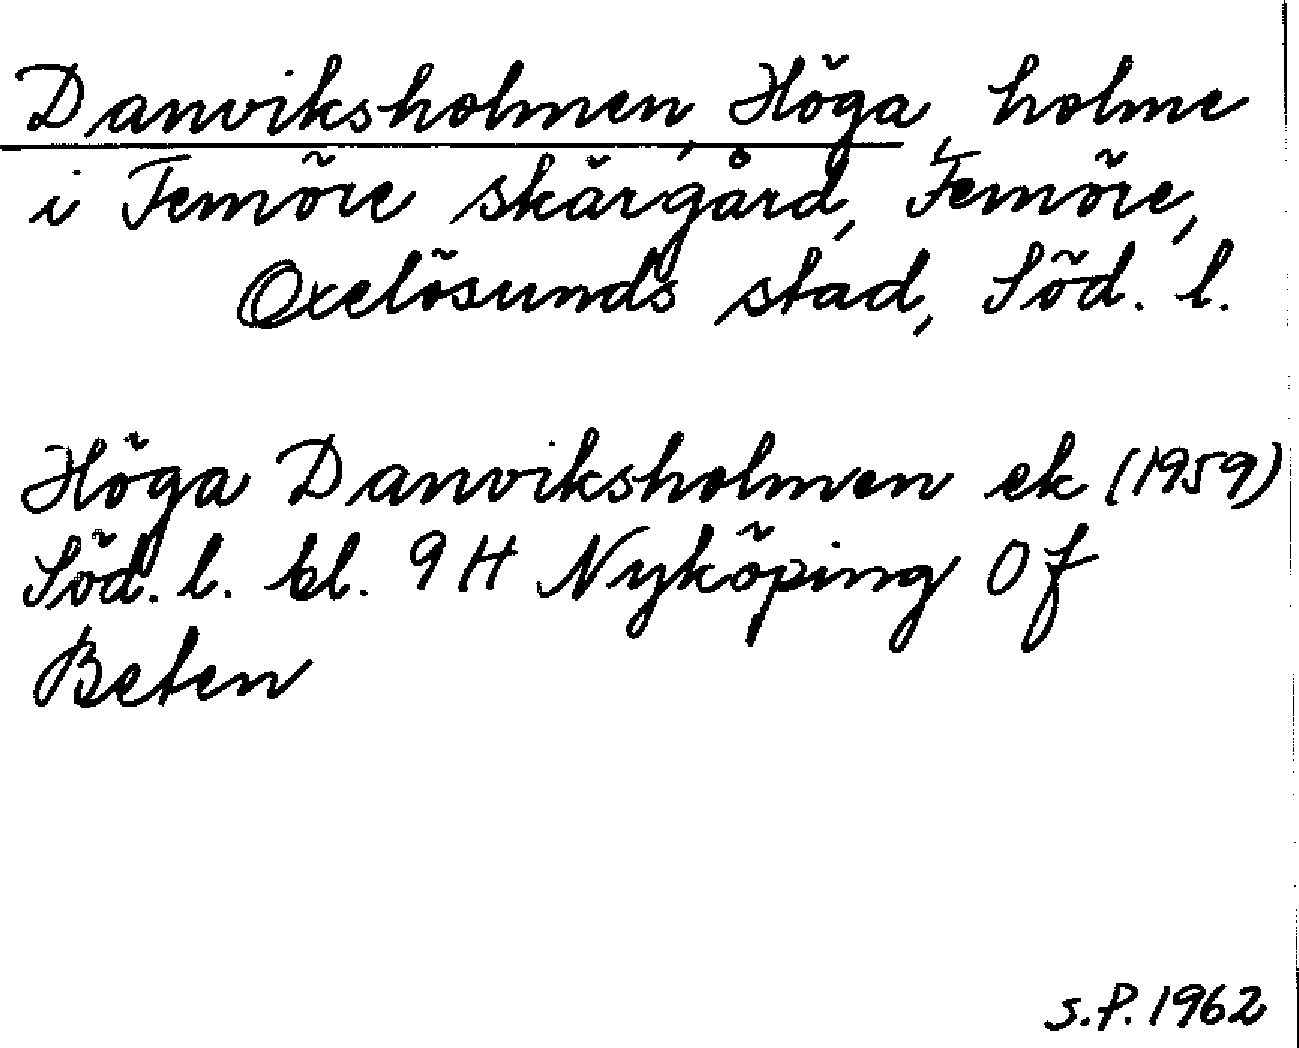 Danviksholmen, Höga, holme
i Femöre skärgård, Femöre,
Oxelösunds stad, Söd. l.
Höga Danviksholmen ek (1959)
Söd. l. bl. 9 H Nyköping Of
Beten
S.P. 1962